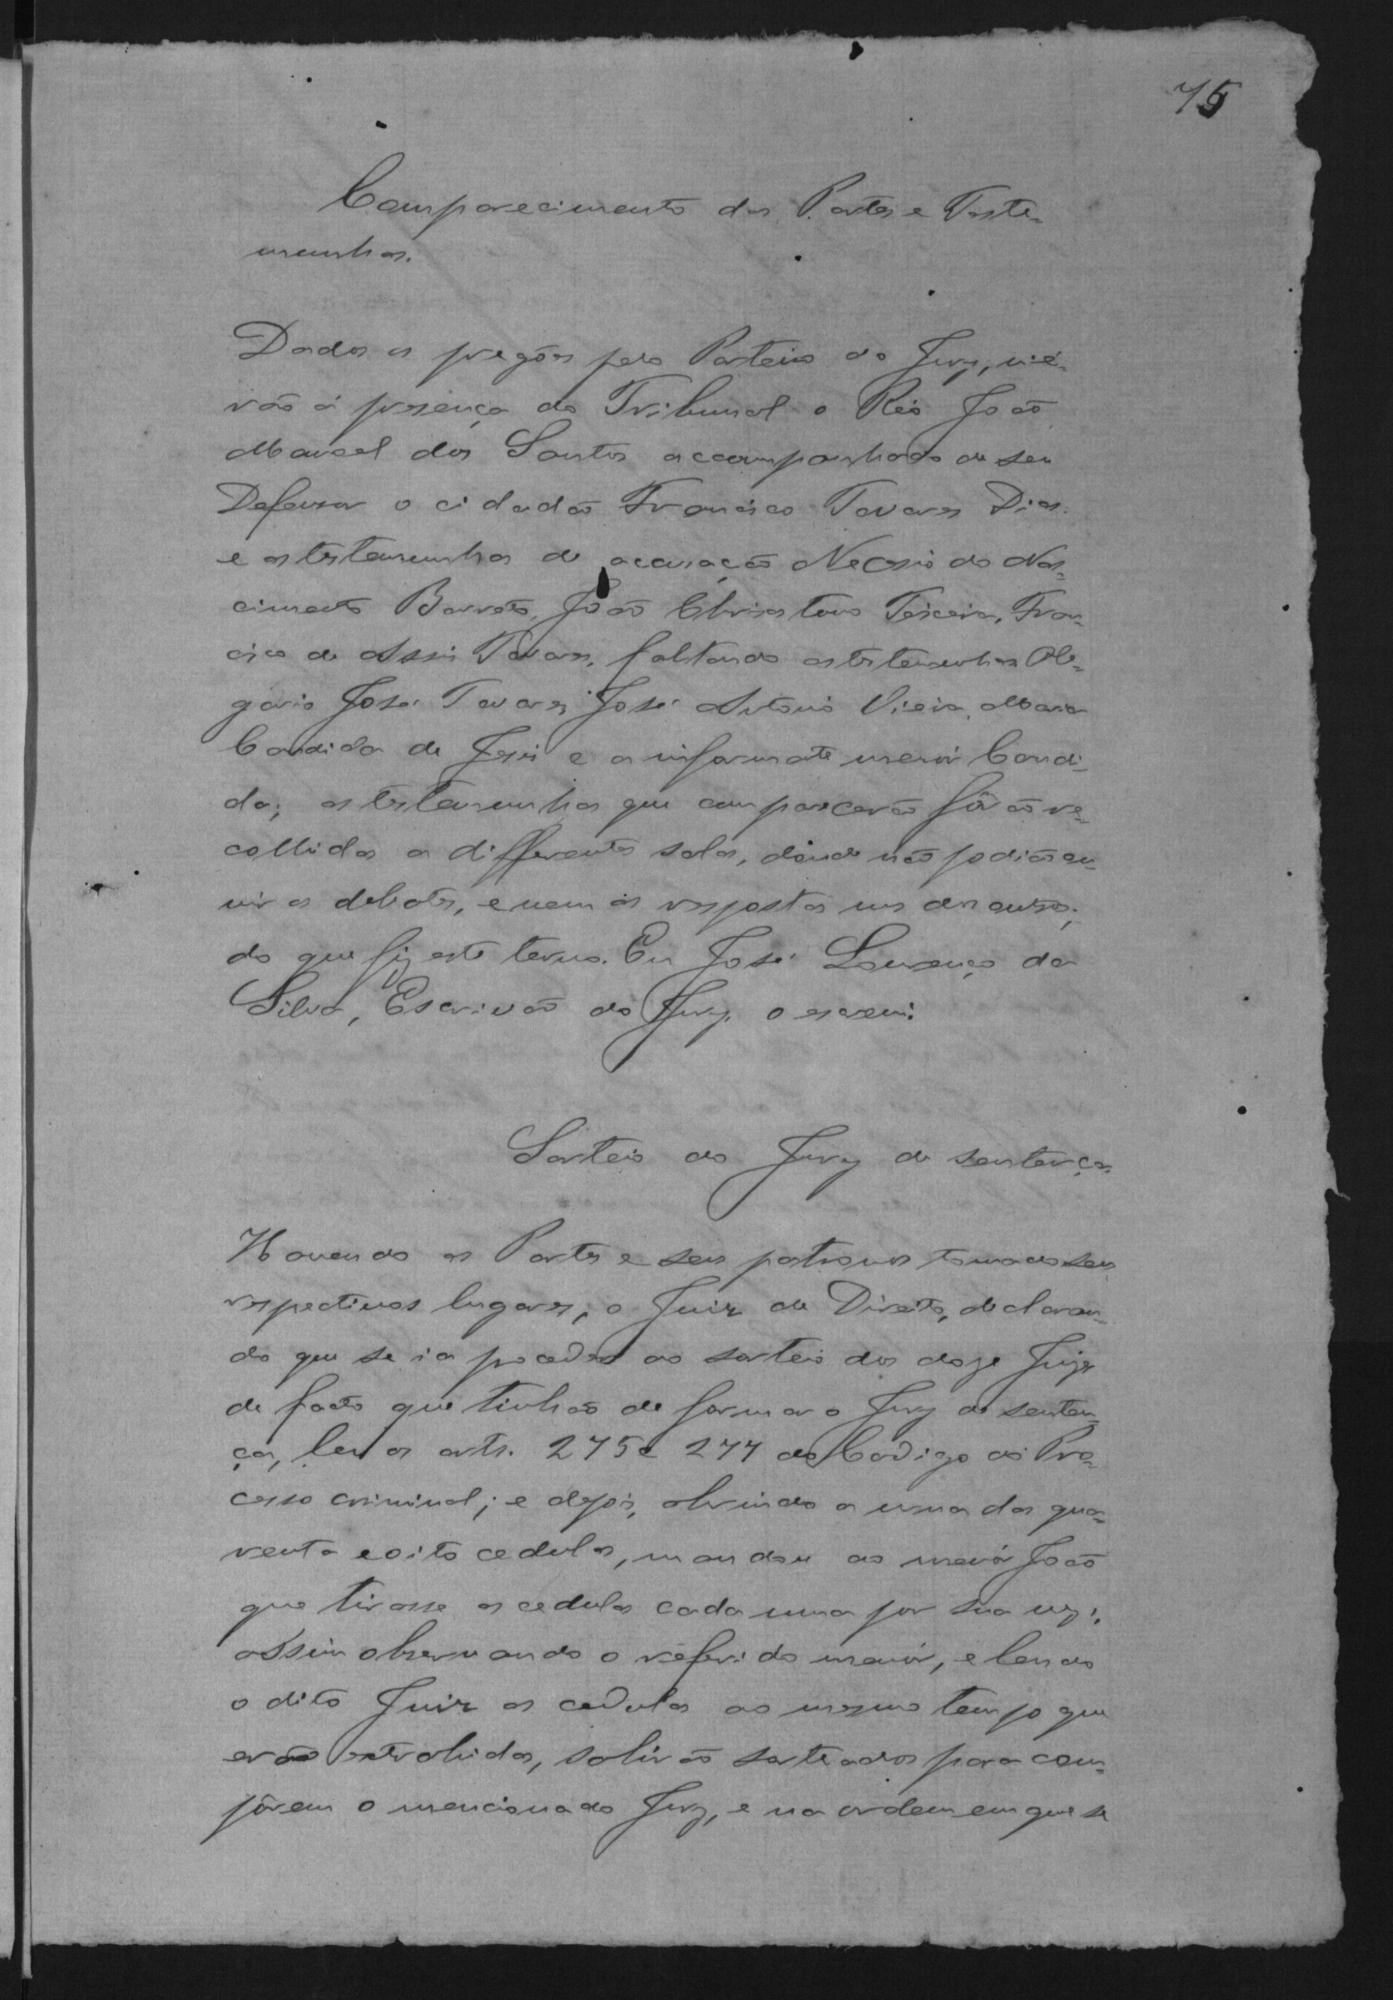 75
Comparecimento das Partes e Teste-
munhas.
Dados os pregões pelo Porteiro do Jury, viè-
rão á presença do Tribunal o Réo João
Manoel dos Santos accompanhado de seu
Defensor o cidadão Francisco Tavares Dias
e as testemunhas de acusação Necesio do Nas-
cimento Barros, João Christovo Teixeira, Fran-
cisco de Assis Tavares, faltando as testemunhas Ole-
gario José Tavares, José Antonio Vieira, Maria
Candida de Jesus e a informante menór Candi-
da; as testemunhas que comparecerão fôrão re-
colhidas a differentes salas, dónde não podião ou-
vir os debates, e nem ás respostas uns dos outros;
do que fiz este termo. Eu José Lourenço da
Silva, Escrivão do Jury, o escrevi.
Sorteio do Jury de sentença
Havendo as Partes e seus patronos tomado seus
respectivos lugares, o Juiz de Direito, declaran-
do que se ia proceder ao sorteio dos doze Juizes
de facto que tinhão de formar o Jury de senten-
ça, leu os arts. 275 e 277 do Codigo do Pro-
cesso criminal; e depois, abrindo a urna das qua-
renta e oito cedulas, mandou ao menór João
que tirasse as cedulas cada uma por sua vez;
assim observando o referido menór, e lendo
o dito Juiz as cedulas ao mesmo tempo que
erão extrahidas, sahirão sorteados para com-
pôrem o mencionado Jury, e na ordem em que se